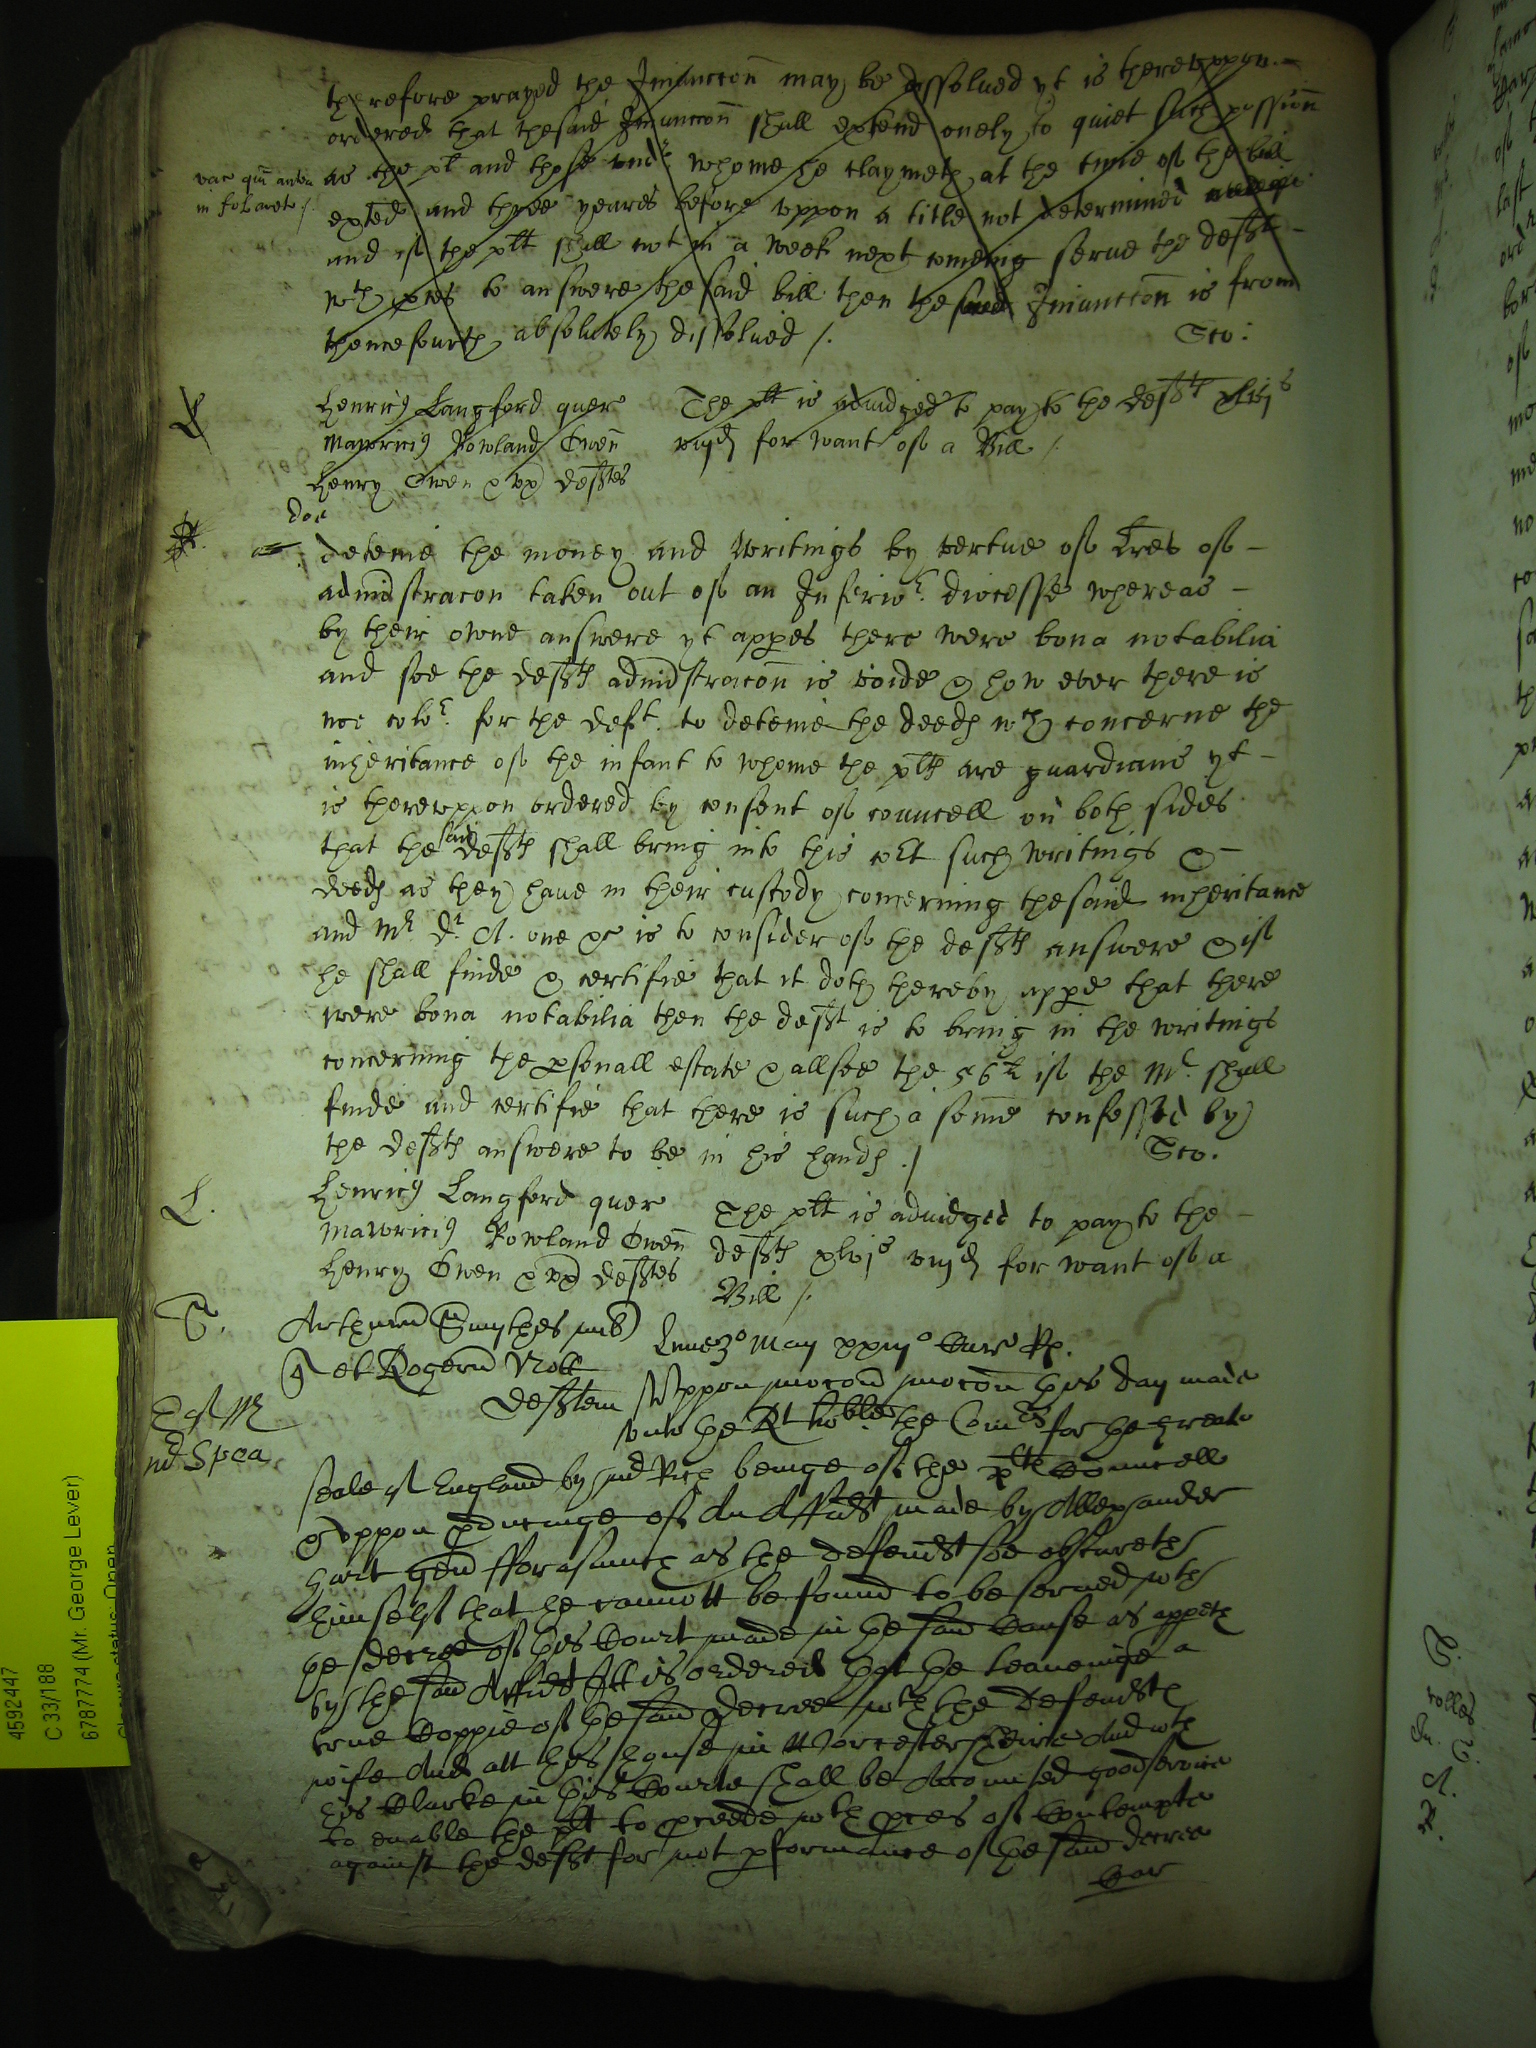 therefore prayed the Iniunccon may be dissolued yt is thereuppon
ordered that thesaid Iniunccon shall extend onely to quiet such possion
vac quia antea
in fol
as the plt and those undr whome he claymeth at the time of the bill
exted and three yeares before uppon a title not determined
and if the plt shall not in a week next comeing serue the deft
wth pces to answere the said bill then the said Iniunccon is from
thencefourth absolutely dissolued /.
Sco:
L
Henricus Langford quer
Mauricius Rowland Owen
Henry Owen & ux defts
The plt is adiudged to pay to the deft xlvjs
viijd for want of a Bill /
doe
deteine the money and Writings by vertue of Lres of
administracon taken out of an Inferior diocesse whereas
by their owne answere yt appes there were bona notabilia
and soe the defts administracon is voide & how ever there is
noe color for the deft to deteine the deeds wch concerne the
inheritance of the infant to whome the plts are guardians yt
is thereuppon ordered by consent of councell on both sides
that the said defts shall bring into this cort such writings &
deeds as they haue in their custody concerning thesaid inheritance
and Mr Dr A. one &c is to consider of the defts answere & if
he shall finde & certifie that it doth thereby appe that there
were bona notabilia then the deft is to bring in the writings
concerning the psonall estate & allsoe the 56li if the Mr shall
finde and certifie that there is such a some confessed by
the defts answere to be in his hands ./
Sco.
L.
Henricus Langford quer
Mauricius Rowland Owen
Henry Owen & ux defts
The plt is adiudged to pay to the
defts xlvjs viijd for want of a
Bill /.
S.
Arthurum Smythes
et Rogerum Nott
deftem
Lune 30 Maij xxiijo Car R.
Uppon mocon this day made
unto the Rt hoble the Comrs for the greate
seale of England by Mr Rich beinge of the plts Councell
& uppon pduceinge of An Affidt made by Allexander
Hart gen fforasmuch as the defendt soe obscureth
himself that he cannott be found to be serued wth
the decree of this Court made in the said Cause as appeth
by the said Affidt It is ordered that the leaueinge a
true Coppie of the said decree wth the defendts
wife And att his house in Worcestersheire And wth
his Clarke in this Courte shall be Accompted good seruice
to enable the plt to pceede wth pces of Contempte
against the deft for not pformance of the said decree
Car
4592447
C 33/188
6787774 (Mr. George Lever)